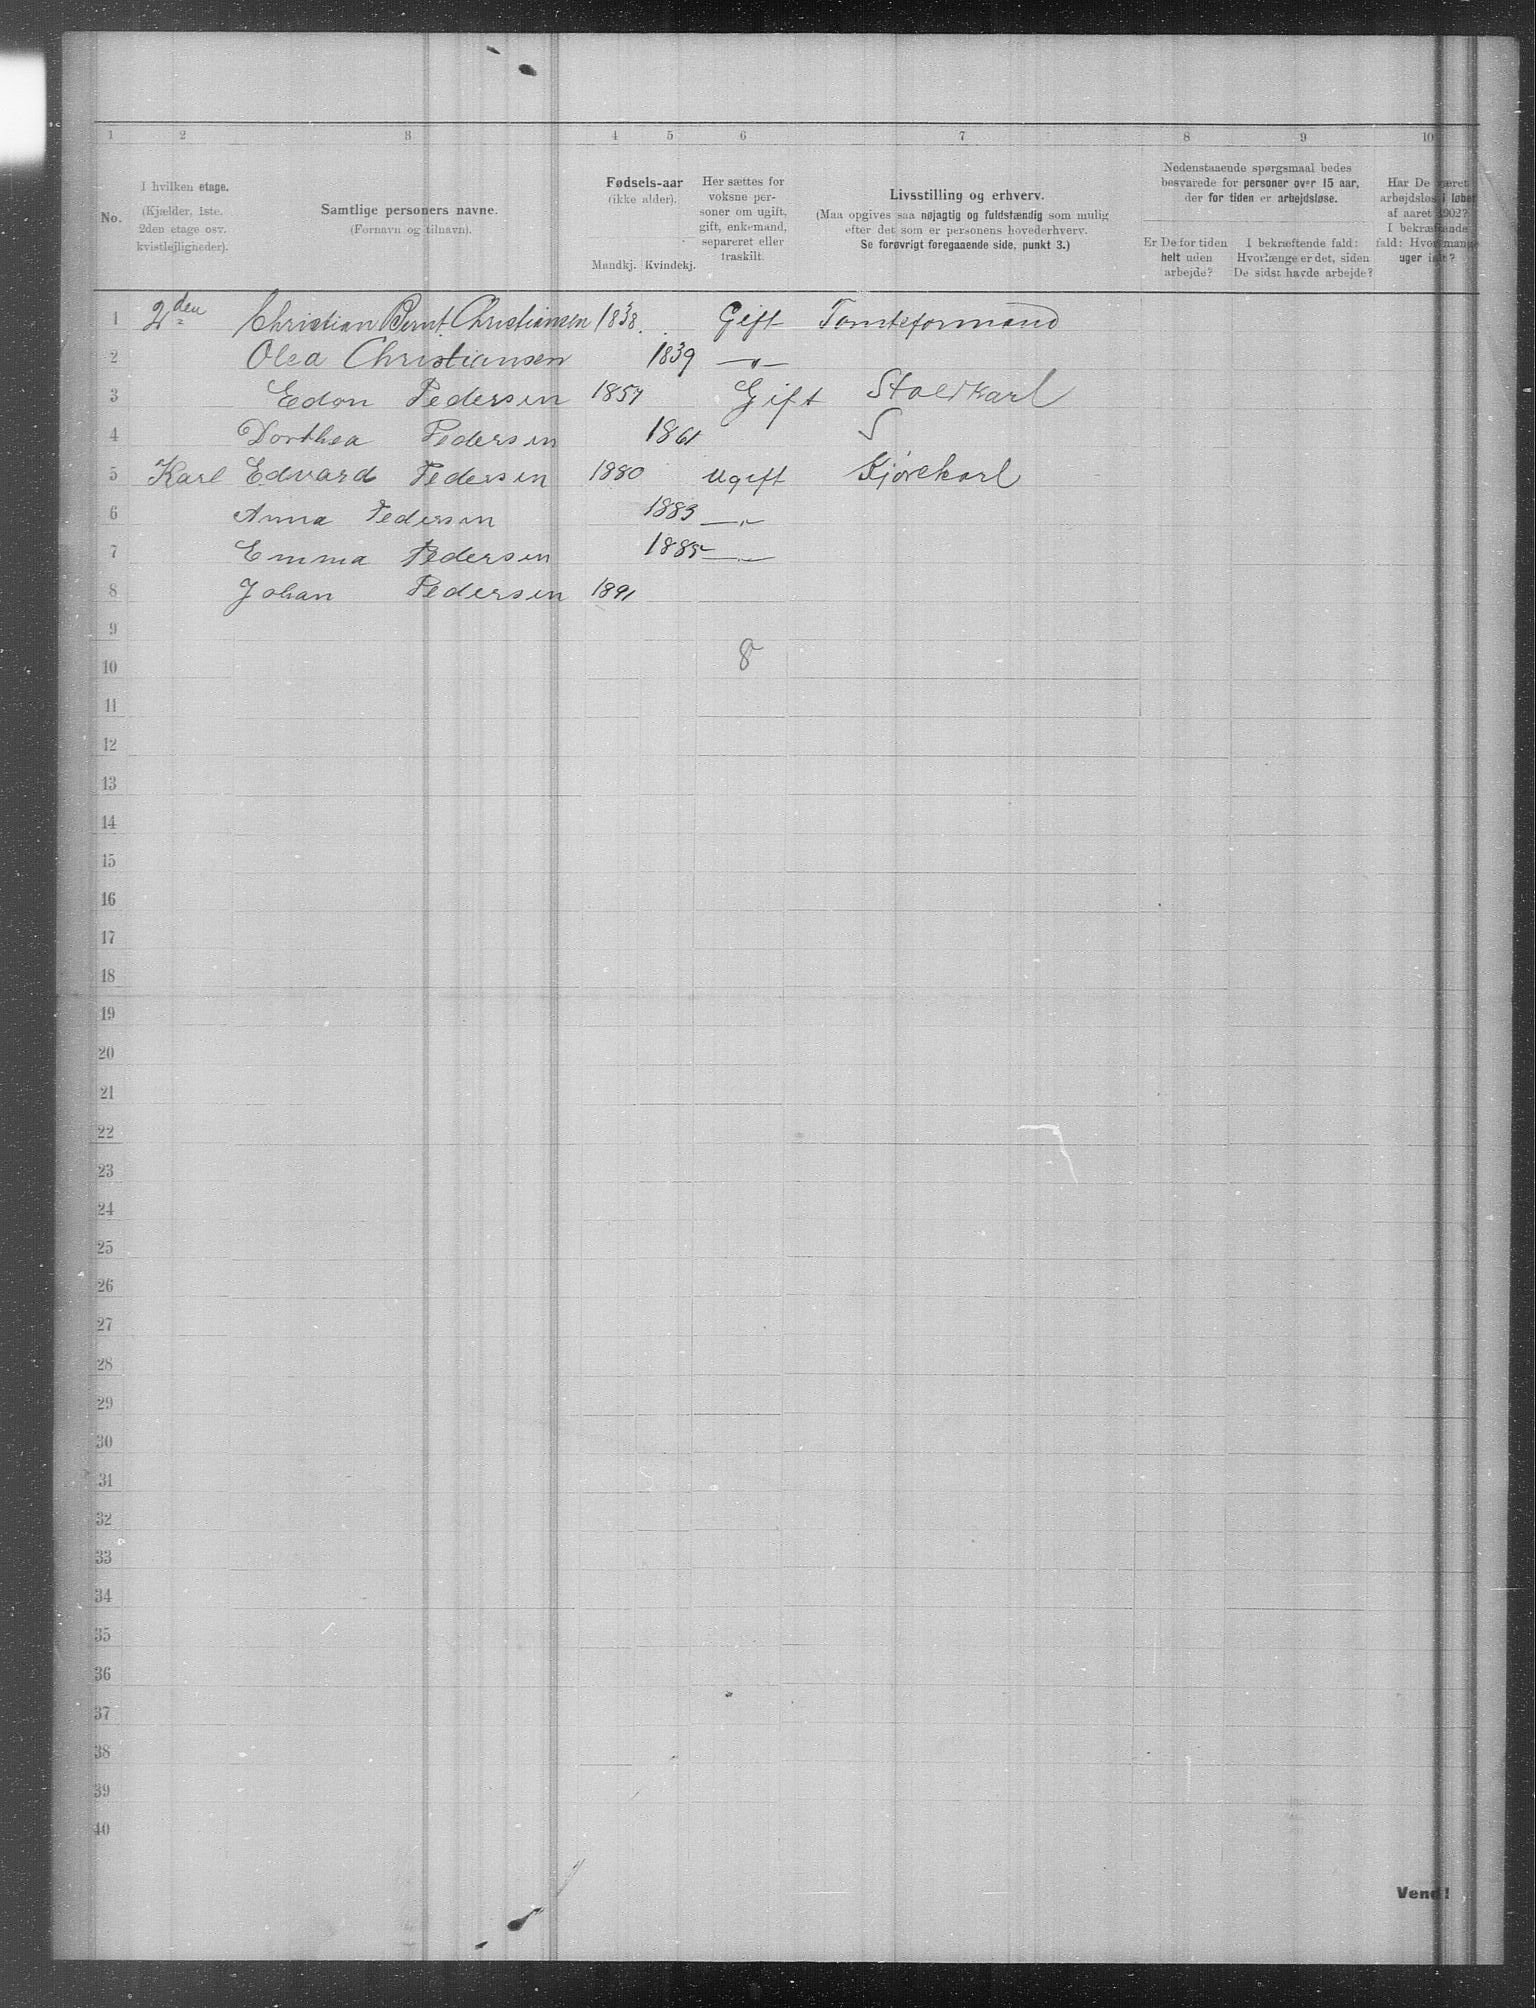 1 2 3 4 5 6 7 8 9 10
No.
I hvilken etage.
(Kjælder, 1ste.
2den etage osv.
kvistlejligheder).
Samtlige personers navne.
(Fornavn og tilnavn).
Fødsels-aar
(ikke alder).
Mandkj. Kvindekj.
Her sættes for
voksne per-
soner om ugift,
gift, enkemand,
separeret eller
fraskilt.
Livsstilling og erhverv.
(Maa opgives saa nøjagtig og fuldstændig som mulig
efter det som er personens hovederhverv.
Se forøvrigt foregaaende side, punkt 3.)
Nedenstaaende spørgsmaal bedes
besvarede for personer over 15 aar,
der for tiden er arbejdsløse.
Er De for tiden
helt uden
arbejde?
I bekræftende fald:
Hvorlænge er det, siden
De sidst havde arbejde?
Har De været
arbejdsløs i løbet
af aaret 1902?
I bekræftende
fald: Hvor mange
uger ialt?
1 2den Christian Bernt Christiansen 1838. Gift Tomteformand
2 Olea Christiansen 1839 —„—
3 Edon Pedersen 1857 Gift Staldkarl
4 Dorthea Pedersen 1861
5 Karl Edvard Pedersen 1880 Ugift Kjørekarl
6 Anna Pedersen 1883 —„—
7 Emma Pedersen 1885 —„—
8 Johan Pedersen 1891
9
10 8
11
12
13
14
15
16
17
18
19
20
21
22
23
24
25
26
27
28
29
30
31
32
33
34
35
36
37
38
39
40
Vend!